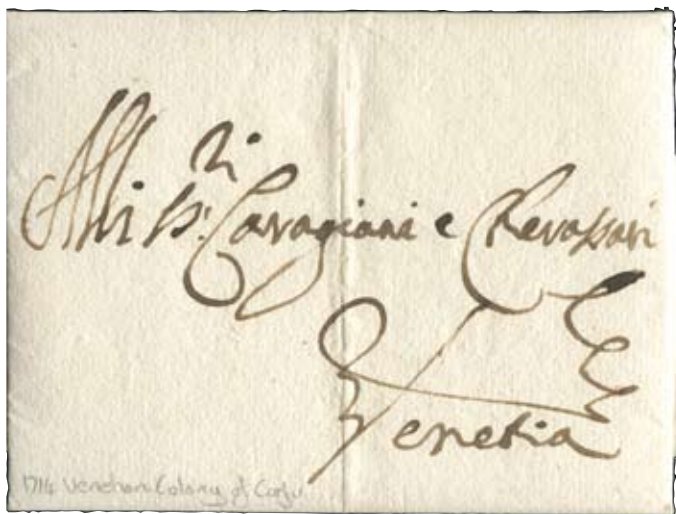 Alli SS:ri Caragiani e
Venetia
1714 Venetian Colony of Corfu